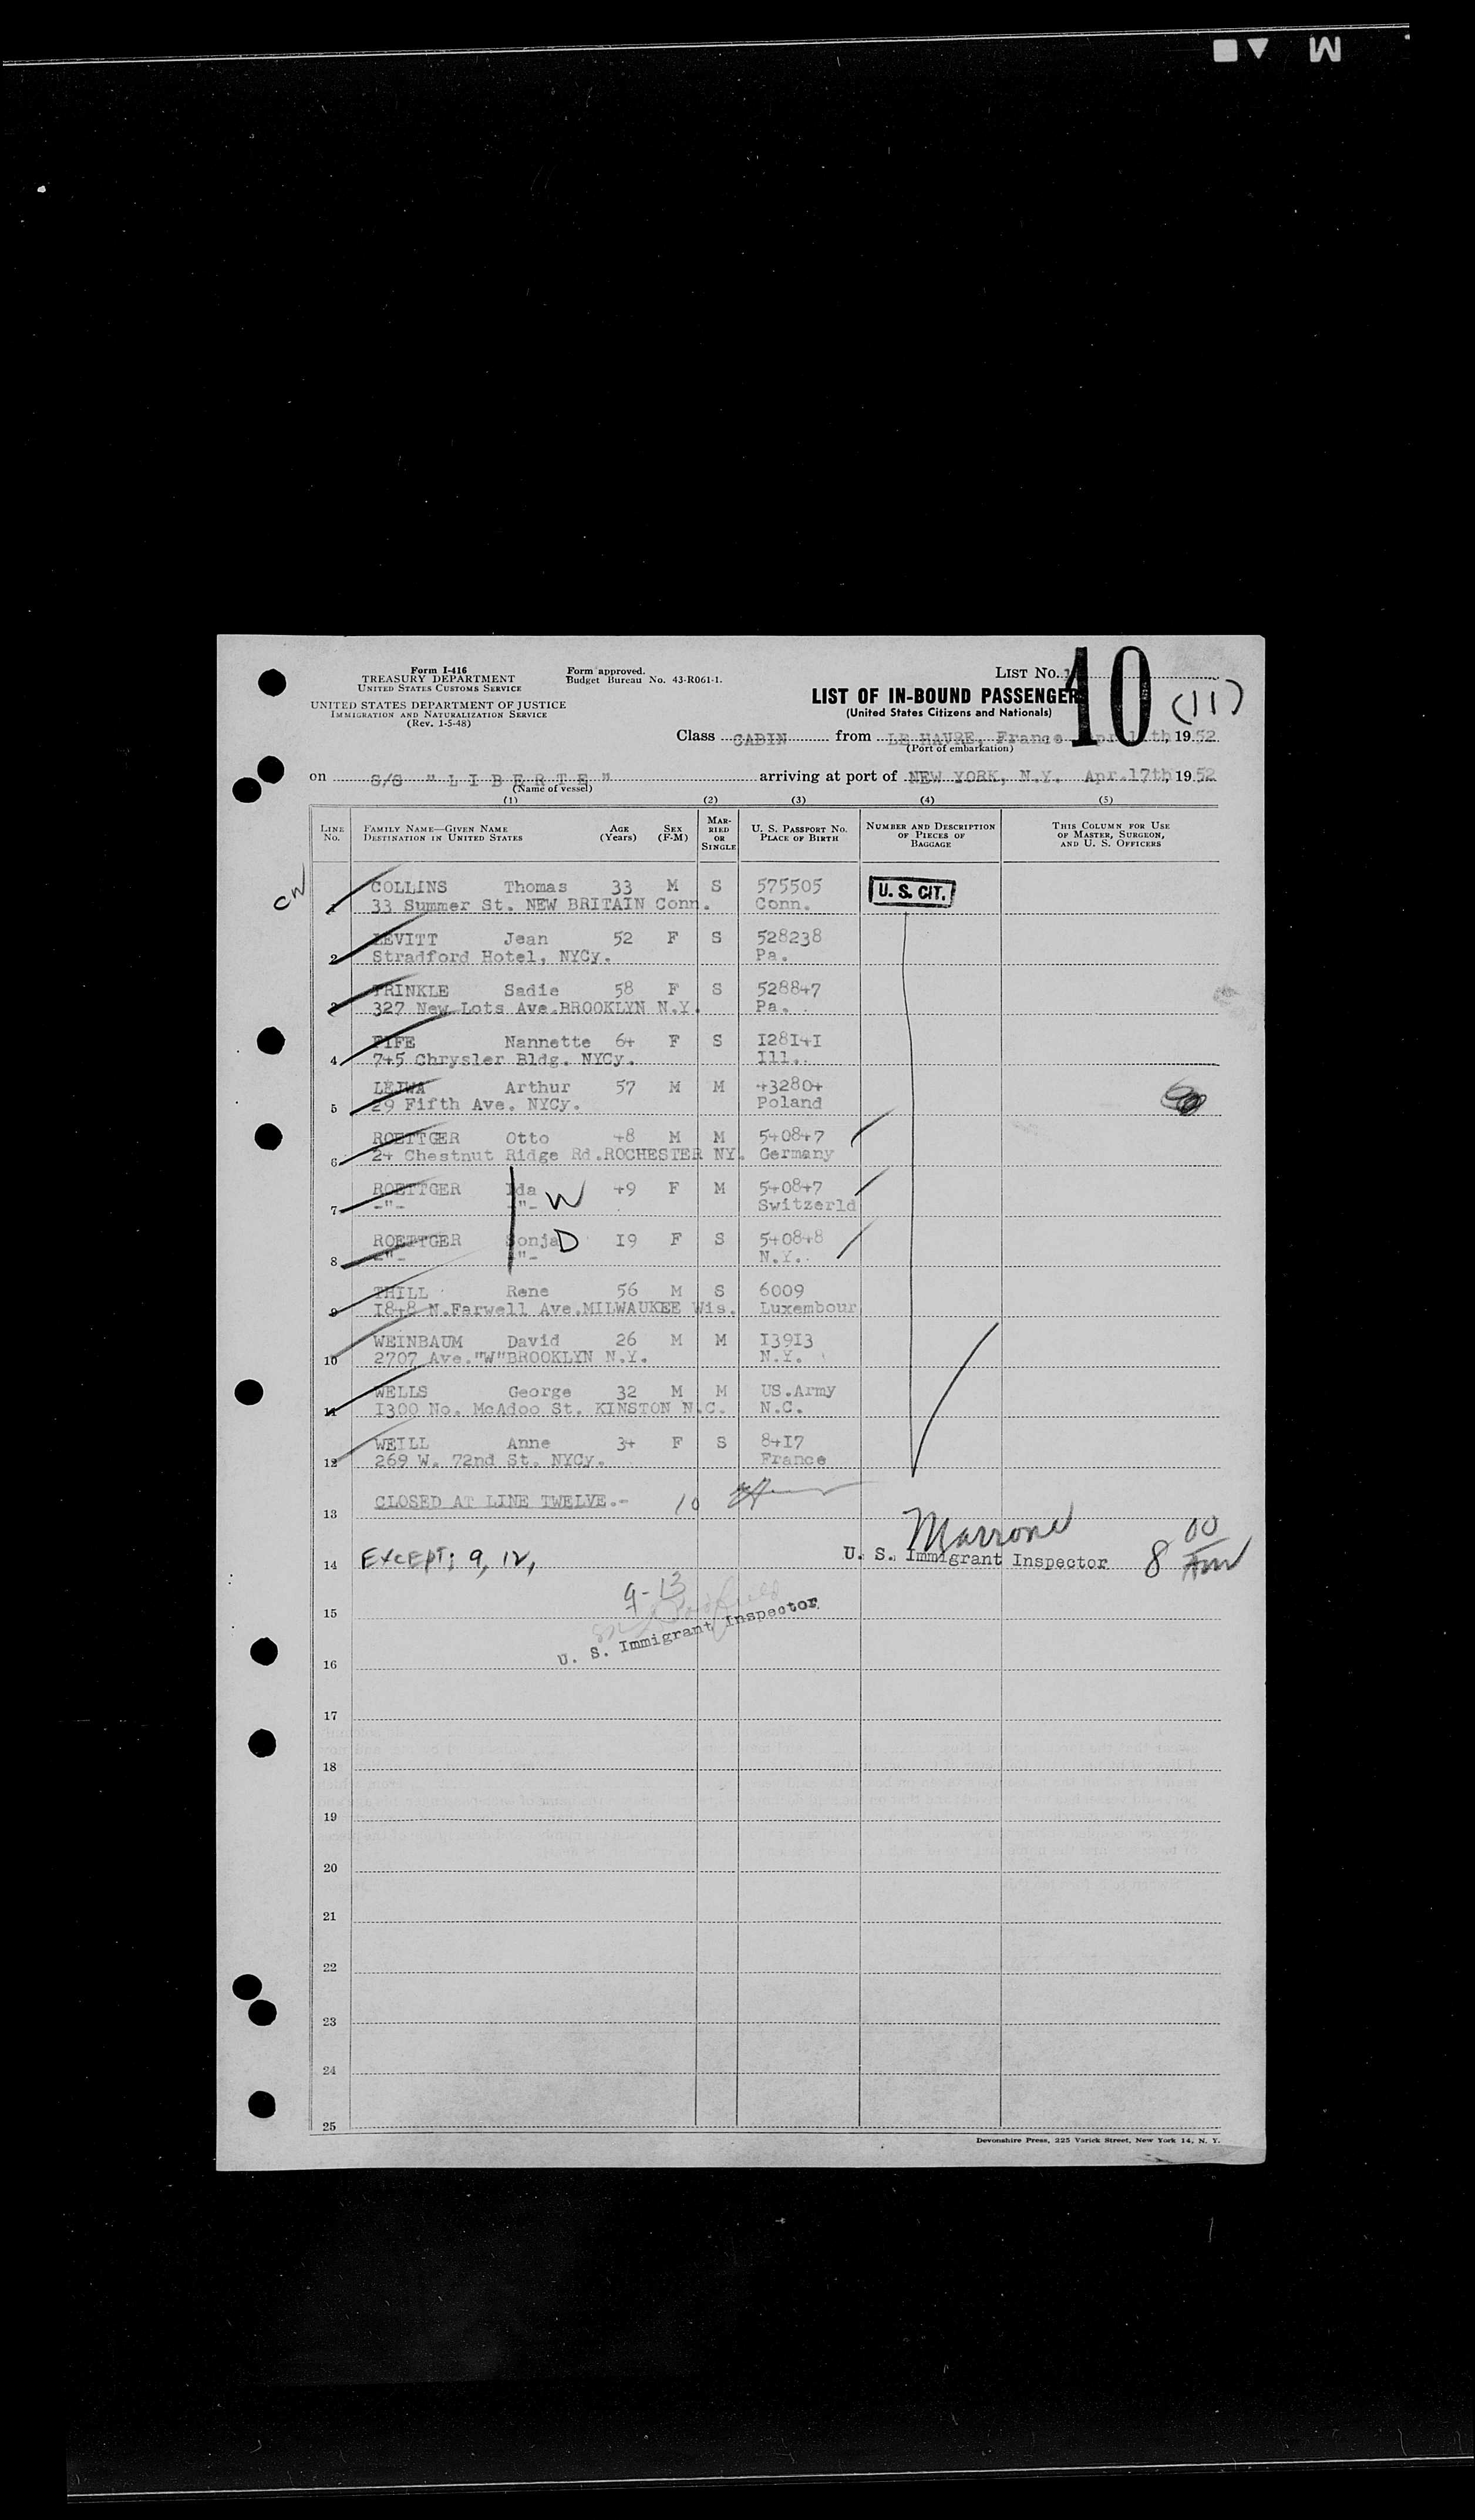 Form I-416
TREASURY DEPARTMENT
UNITED STATES CUSTOMS SERVICE
UNITED STATES DEPARTMENT OF JUSTICE
IMMIGRATION AND NATURALIZATION SERVICE
(Rev. 1-5-48)
Form approved.
Budget Bureau No. 43-R061-1.
LIST No. 10 (11)
LIST OF IN-BOUND PASSENGER
(United States Citizens and Nationals)
Class CABIN from LE HAVRE, France 19 52
(Port of embarkation)
on S/S "LIBERTE" arriving at port of NEW YORK, N.Y. Apr.17th, 19 52
(Name of vessel)
(1) (2) (3) (4) (5)
LINE No. FAMILY NAME—GIVEN NAME DESTINATION IN UNITED STATES AGE (Years) SEX (F-M) MARRIED OR SINGLE U. S. PASSPORT No. PLACE OF BIRTH NUMBER AND DESCRIPTION OF PIECES OF BAGGAGE THIS COLUMN FOR USE OF MASTER, SURGEON, AND U. S. OFFICERS
CW
COLLINS Thomas 33 M S 575505 U. S. CIT.
1 33 Summer St. NEW BRITAIN Conn. Conn.
LEVITT Jean 52 F S 528238
2 Stradford Hotel, NYCy. Pa.
TRINKLE Sadie 58 F S 528847
3 327 New Lots Ave.BROOKLYN N.Y. Pa.
FIFE Nannette 64 F S I28I4I
4 745 Chrysler Bldg. NYCy. Ill.
LEJWA Arthur 57 M M 432804
5 29 Fifth Ave. NYCy. Poland
ROETTGER Otto 48 M M 540847
6 24 Chestnut Ridge Rd.ROCHESTER NY. Germany
ROETTGER Ida W 49 F M 540847
7 -"- -"- Switzerld
ROETTGER Sonja D I9 F S 540848
8 -"- -"- N.Y.
THILL Rene 56 M S 6009
9 I848 N.Farwell Ave.MILWAUKEE Wis. Luxembour
WEINBAUM David 26 M M I39I3
10 2707 Ave."W"BROOKLYN N.Y. N.Y.
WELLS George 32 M M US.Army
11 I300 No. McAdoo St. KINSTON N.C. N.C.
WEILL Anne 34 F S 84I7
12 269 W. 72nd St. NYCy. France
CLOSED AT LINE TWELVE.- 10
13
Marrone
14 EXCEPT; 9, 12, U. S. Immigrant Inspector 8 00
9-13
15
U. S. Immigrant Inspector
16
17
18
19
20
21
22
23
24
25
Devonshire Press, 225 Varick Street, New York 14, N. Y.